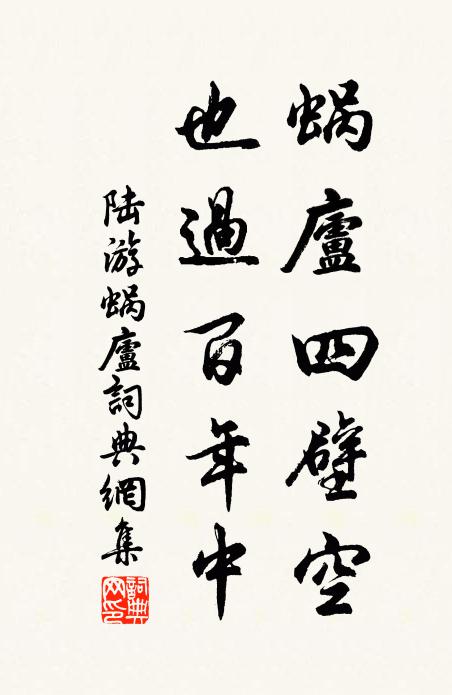 蝸廬四壁空
也過百年中
陸游蝸廬詞典網集
詞典
网印